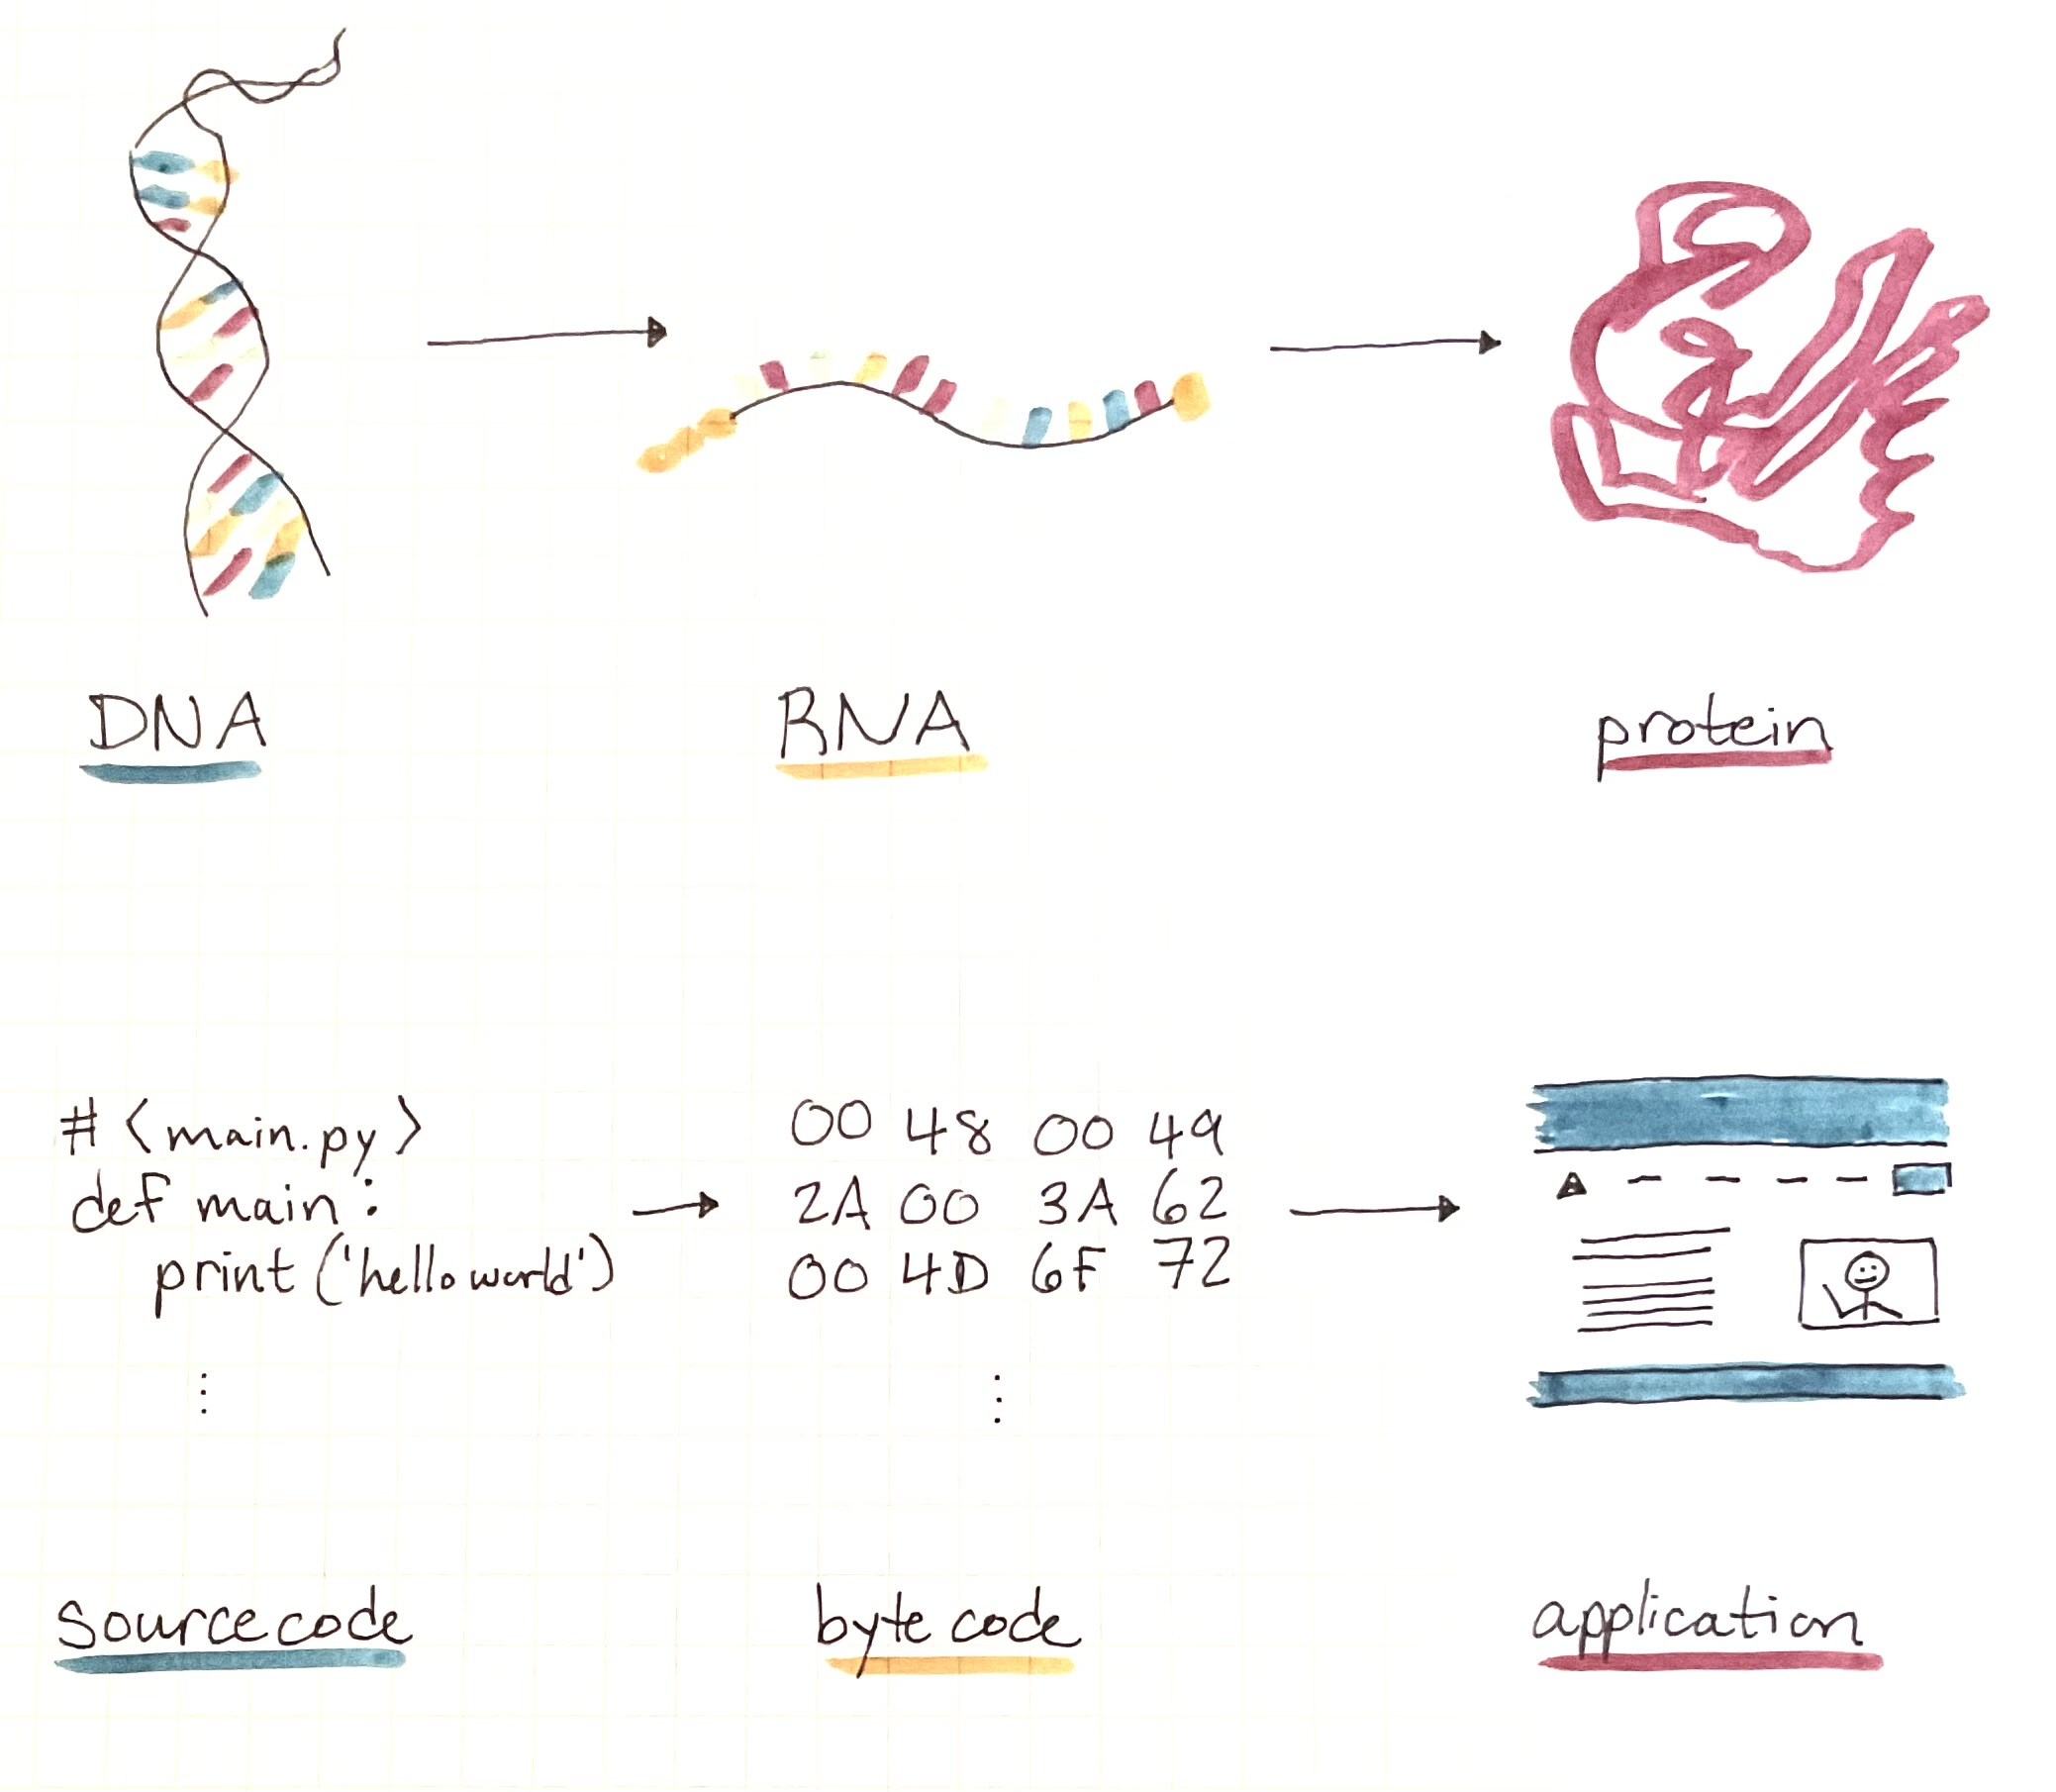 DNA
RNA
protein
# <main.py>
def main:
print ('hello world')
⋮
00 48 00 49
2A 00 3A 62
00 4D 6F 72
⋮
source code
byte code
application